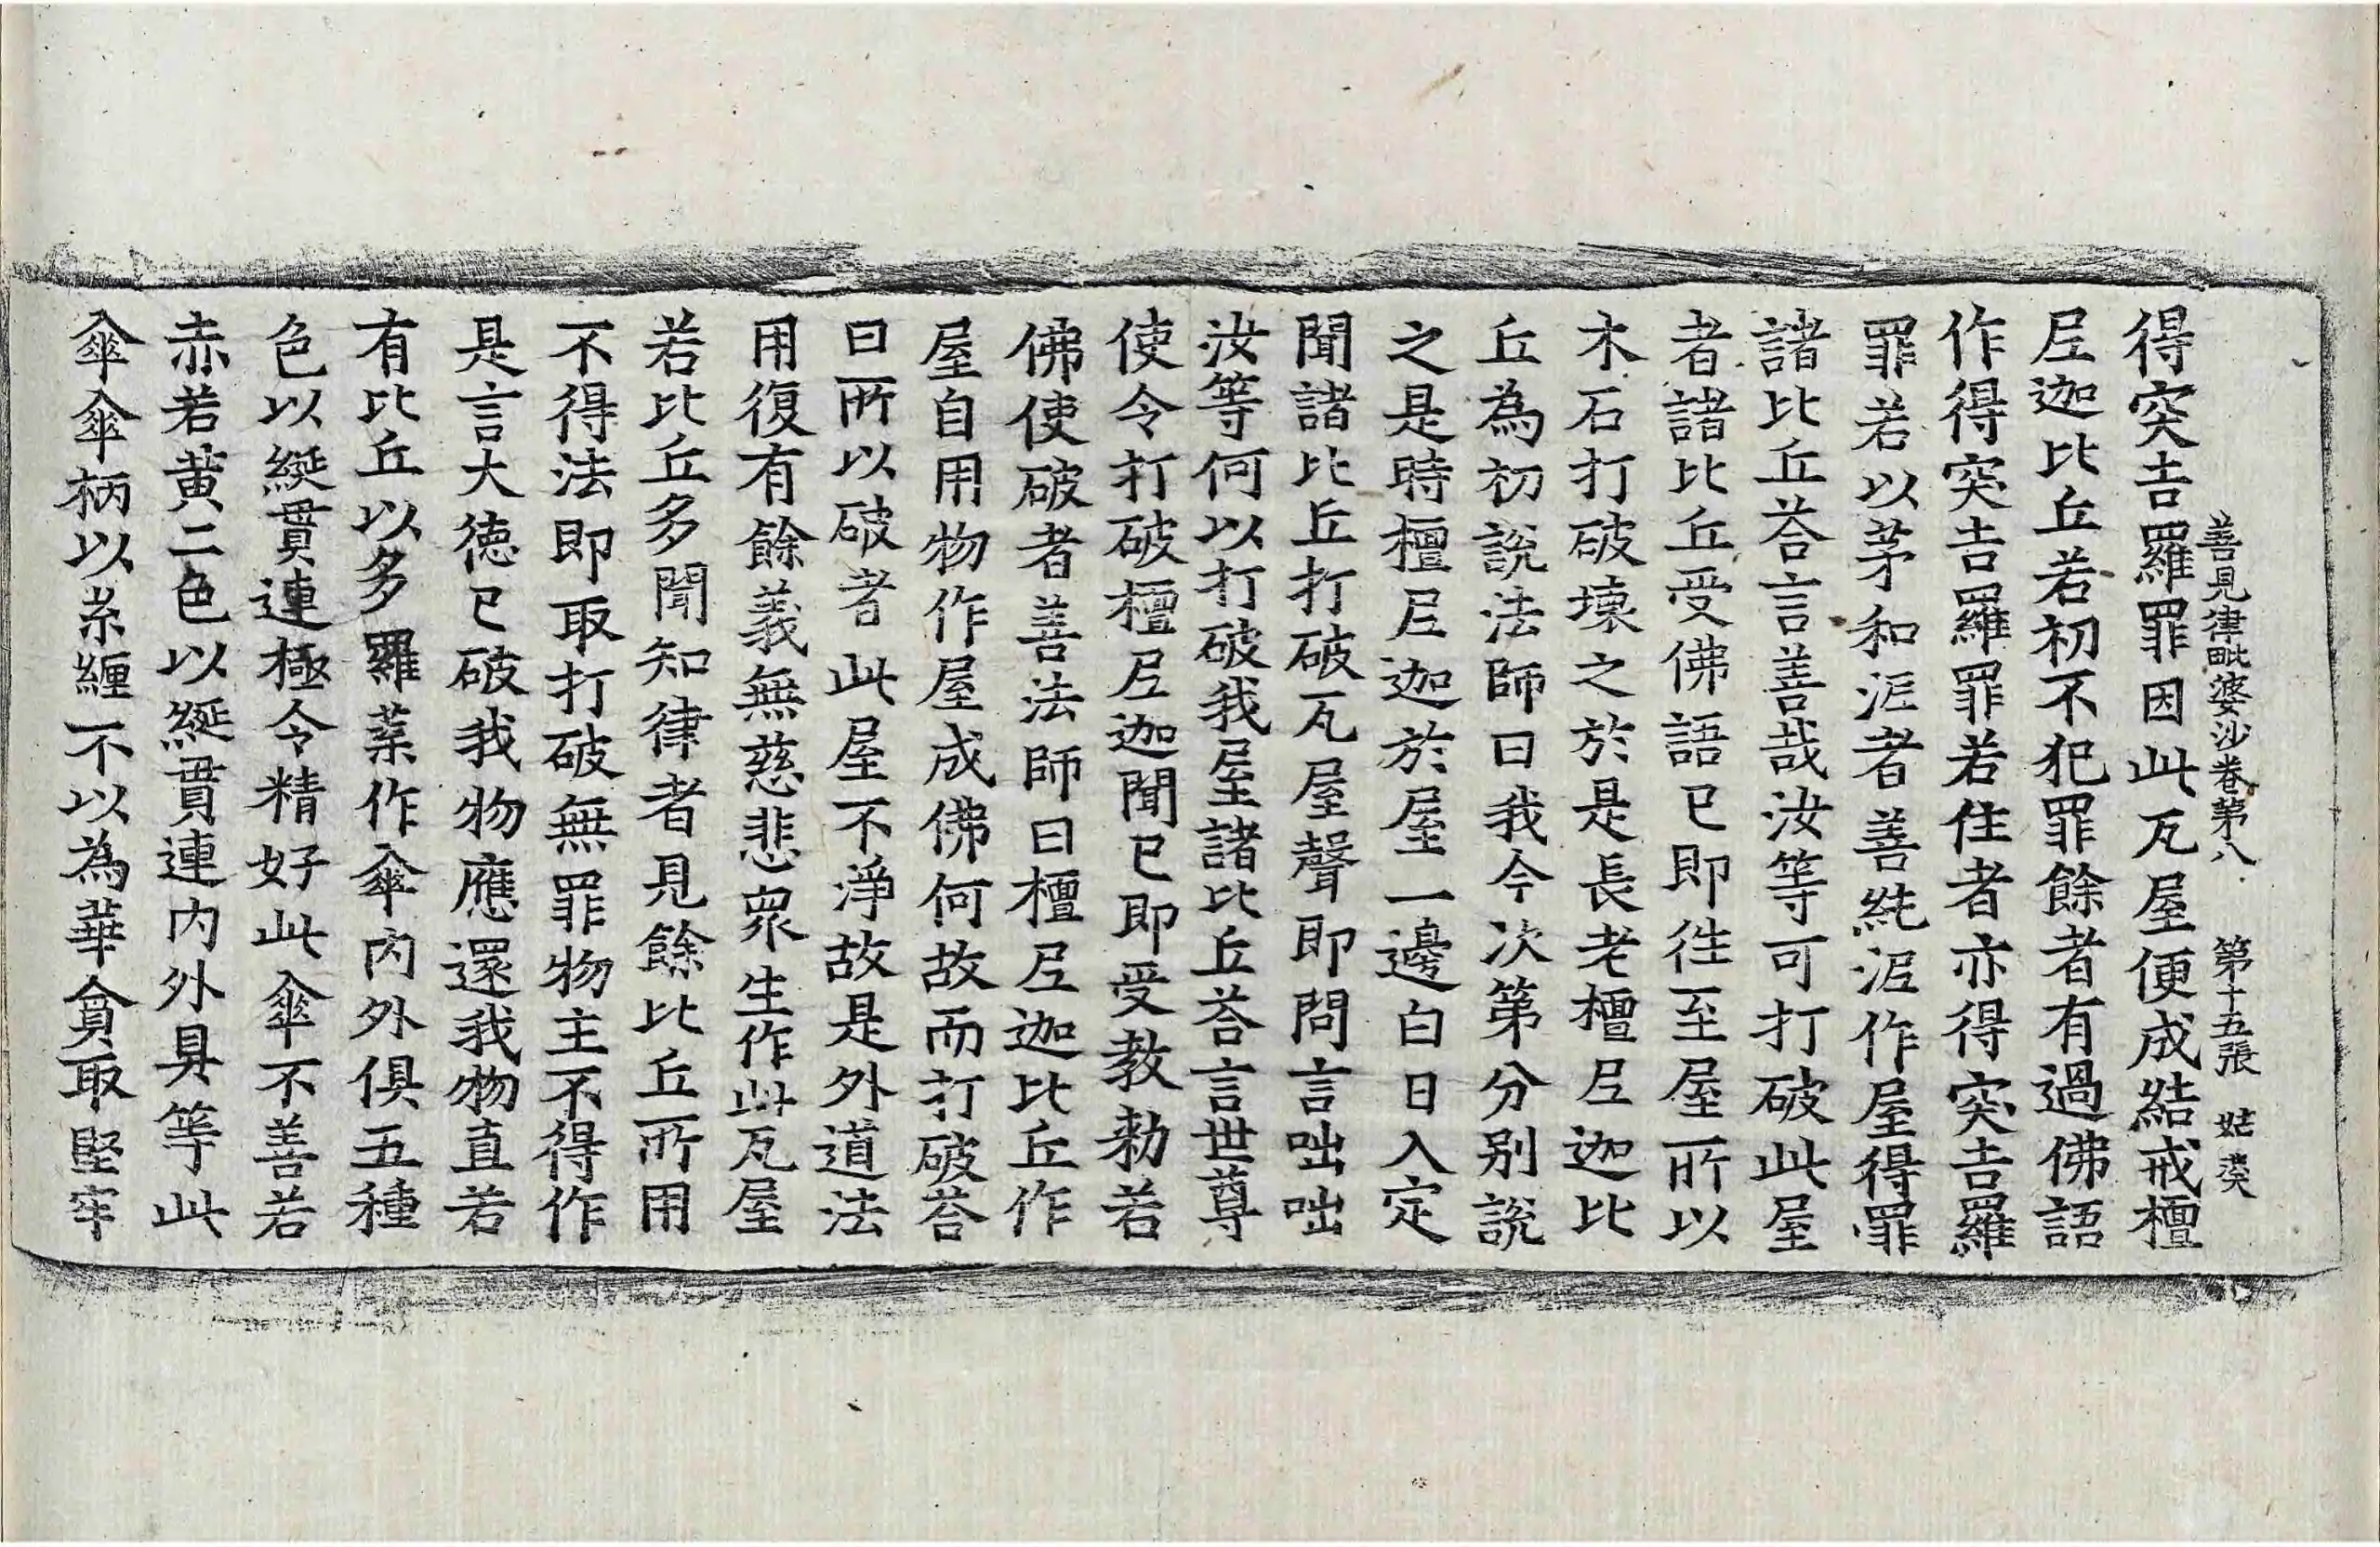 善見律毗婆沙卷第八 第十五張 姑
得突吉羅罪因此瓦屋便成結戒檀
尼迦比丘若初不犯罪餘者有過佛語
作得突吉羅罪若住者亦得突吉羅
罪若以茅和泥者善純泥作屋得罪
諸比丘荅言善哉汝等可打破此屋
者諸比丘受佛語已即往至屋所以
木石打破壞之於是長老檀尼迦比
丘為初說法師曰我今次第分別說
之是時檀尼迦於屋一邊白日入定
聞諸比丘打破瓦屋聲即問言咄咄
汝等何以打破我屋諸比丘荅言世尊
使令打破檀尼迦聞已即受教勑若
佛使破者善法師曰檀尼迦比丘作
屋自用物作屋成佛何故而打破荅
曰所以破者此屋不淨故是外道法
用復有餘義無慈悲眾生作此瓦屋
若比丘多聞知律者見餘比丘所用
不得法即取打破無罪物主不得作
是言大德已破我物應還我物直若
有比丘以多羅葉作傘內外俱五種
色以綖貫連極令精好此傘不善若
赤若黃二色以綖貫連內外具等此
傘傘柄以糸纏不以為華貪取堅牢